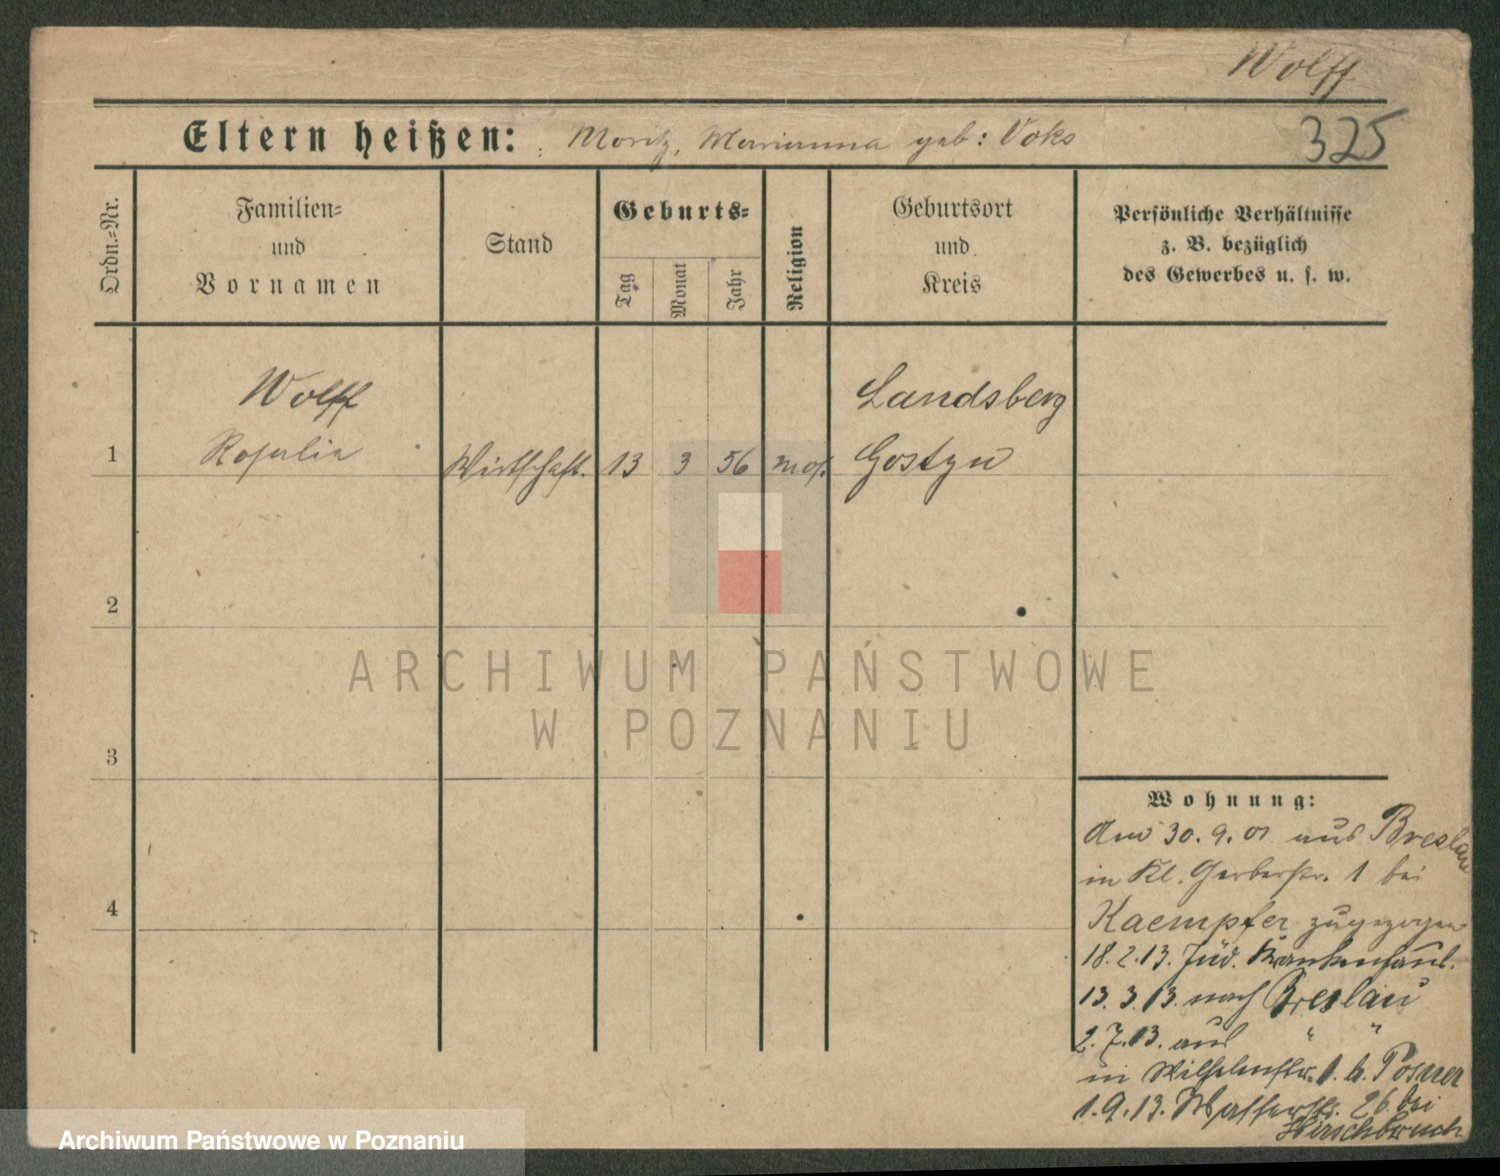 Wolff
Eltern heißen: Moritz, Marianna geb: Voks
325
Ordn.-Nr.
Familien-
und
Vornamen
Stand
Geburts-
Tag
Monat
Jahr
Religion
Geburtsort
und
Kreis
Persönliche Verhältnisse
z. B. bezüglich
des Gewerbes u. s. w.
1
Wolff
Rosalie
Wirtschaft.
13
3
56
mos.
Landsberg
Gostyn
2
3
4
ARCHIWUM PAŃSTWOWE
W POZNANIU
Wohnung:
Am 30.9.01 aus Breslau
in Kl. Gerberstr. 1 bei
Kaempfer zugezogen
18.2.13. Jüd. Krankenhaus.
13.3.13. nach Breslau
2.7.13. aus " "
in Wilhelmstr. 1. b. Posner
1.9.13. Wasserstr. 26 bei
Hirschbruch
Archiwum Państwowe w Poznaniu